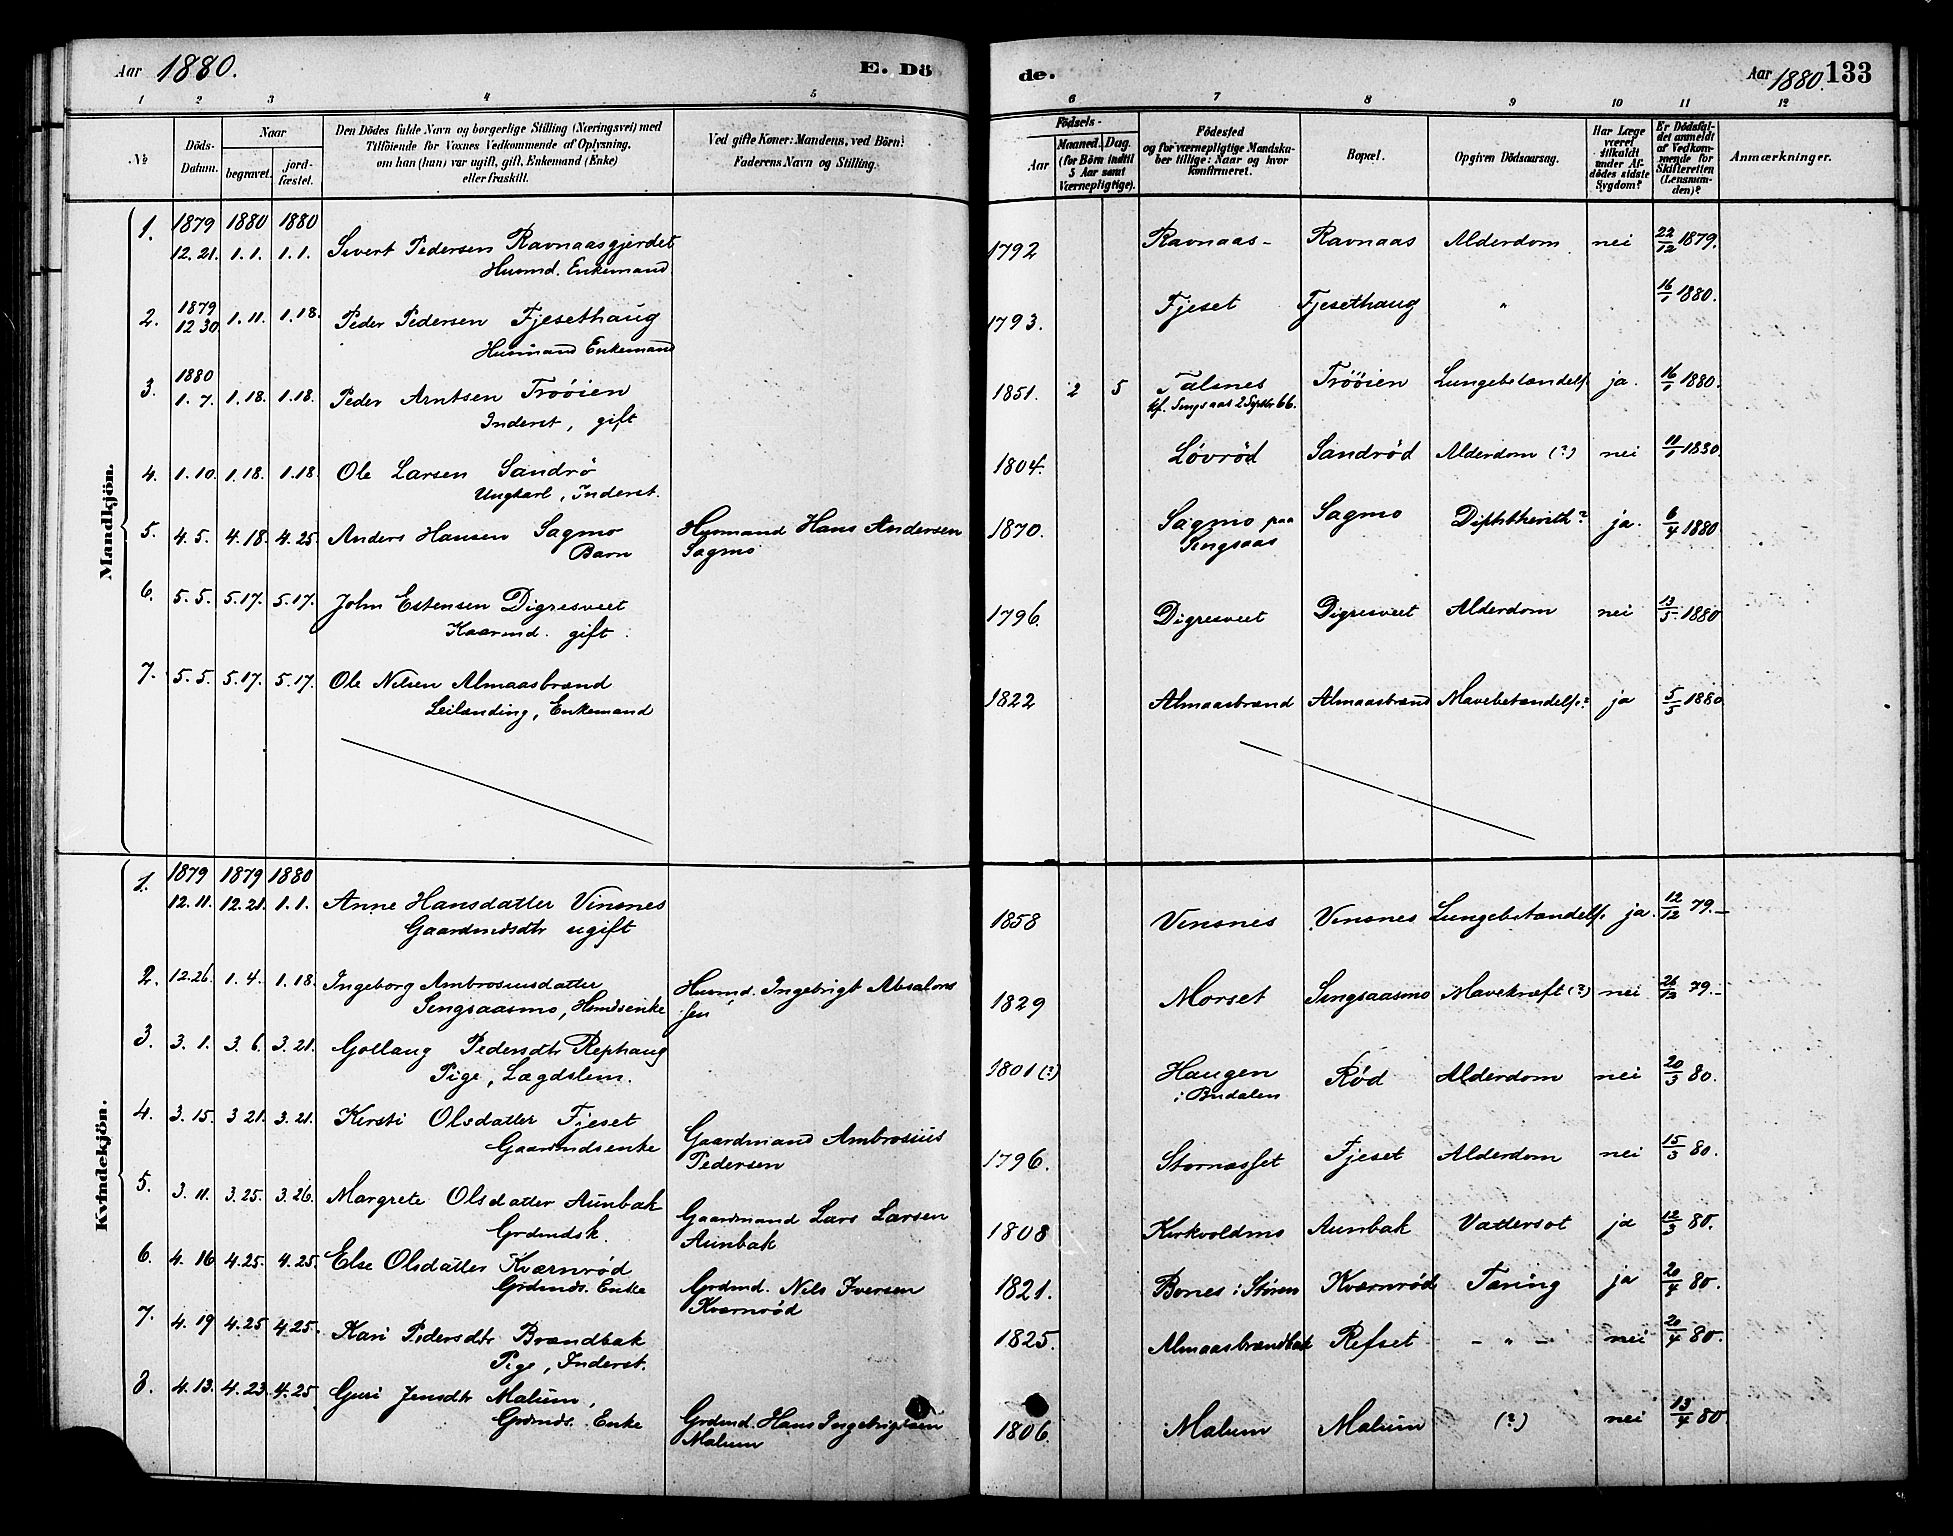 Aar 1880. E. Dö
de. Aar 1880. 133
1 2 3 4 5 6 7 8 9 10 11 12
№
Döds-
Datum.
Naar
begravet.
jord-
fæstet.
Den Dödes fulde Navn og borgerlige Stilling (Næringsvei) med
Tilföiende for Voxnes Vedkommende af Oplysning,
om han (hun) var ugift, gift, Enkemand (Enke)
eller fraskilt.
Ved gifte Koner: Mandens, ved Börn:
Faderens Navn og Stilling.
Födsels-
Aar
Maaned.
Dag.
(for Börn indtil
5 Aar samt
Værnepligtige).
Födested
og for værnepligtige Mandsku-
ber tillige: Naar og hvor
konfirmeret.
Bopæl.
Opgiven Dödsaarsag.
Har Læge
været
tilkaldt
under Af-
dödes sidste
Sygdom?
Er Dödsfal-
det anmeldt
af Vedkom-
mende for
Skifteretten
(Lensman-
den)?
Anmærkninger.
Mandkjön.
1. 1879 1880 1880
12.21. 1.1. 1.1. Sivert Pedersen Ravnaasgjerdet 1792 Ravnaas- Ravnaas Alderdom nei 22/12 1879.
Husmd. Enkemand
2. 1879
12 30 1.11. 1.18. Peder Pedersen Fjesethaug 1793. Fjeset Fjesethaug " 16/1 1880.
Husmand Enkemand
3. 1880
1.7. 1.18. 1.18. Peder Arntsen Trøøien 1851. 2 5 Talsnes Trøöien Lungebetændels. ja. 16/1 1880.
Inderst, gift kf. Singsaas 2 Septbr 66.
4. 1.10. 1.18. 1.18 Ole Larsen Sandrø 1804. Løvrød Sandrød Alderdom (?) nei 11/1 1880.
Ungkarl, Inderst.
5. 4.5. 4.18. 4.25. Anders Hansen Sagmo Husmand Hans Andersen 1870. Sagmo paa Sagmo Diphtherith? ja. 6/4 1880
Barn Sagmo Singsaas
6. 5.5. 5.17. 5.17. John Estensen Digresveet 1796. Digresveet Digresveet Alderdom nei 13/5 1880
Kaarmd. gift.
7. 5.5. 5.17. 5.17. Ole Nilsen Almaasbrænd 1822 Almaasbrænd Almaasbrænd Mavebetændels.? ja 5/5 1880
Leilænding, Enkemand
Kvindekjön.
1. 1879 1879 1880
12.11. 12.21. 1.1. Anne Hansdatter Vinsnes 1858 Vinsnes Vinsnes Lungebetændels. ja. 12/12 79.-
Gaardmdsdtr ugift
2. 12.26. 1.4. 1.18. Ingeborg Ambrosiusdatter Husmd. Ingebrigt Absalons 1829 Morset Singsaasmo Mavekræft (?) nei 26/12 79.-
Singsaasmo, Hsmdsenke sen
3. 3.1. 3.6. 3.21. Gollaug Pedersdtr Rephaug 1801 (?) Haugen Rød Alderdom nei 20/3 80.
Pige, Lægdslem. i Budalen
4. 3.15. 3 21. 3.21. Kirsti Olsdatter Fjeset Gaardmand Ambrosius 1796. Stornæsset Fjeset Alderdom nei 15/3 80.
Gaardmdsenke Pedersen
5. 3.11. 3.25. 3.26. Margrete Olsdatter Aunbak Gaardmand Lars Larsen 1808 Kirkvoldmo Aunbak Vattersot ja 12/3 80.
Grdmdsk. Aunbak
6. 4.16 4.25. 4.25. Else Olsdatter Kværnrød Grdmd. Nils Iversen 1821. Bones i Støren Kværnrød Tæring ja 20/4 80.
Grdmds. Enke Kværnrød
7. 4.19 4.25 4.25. Kari Pedersdtr Brændbak 1825. Almaasbrændbak Refset - " - nei 20/4 80.
Pige, Inderst.
8. 4.13. 4.23. 4.25 Guri Jensdtr Malum, Grdmd. Hans Ingebrigtsen 1806. Malum Malum (?) nei 13/4 80
Grdmds. Enke Malum